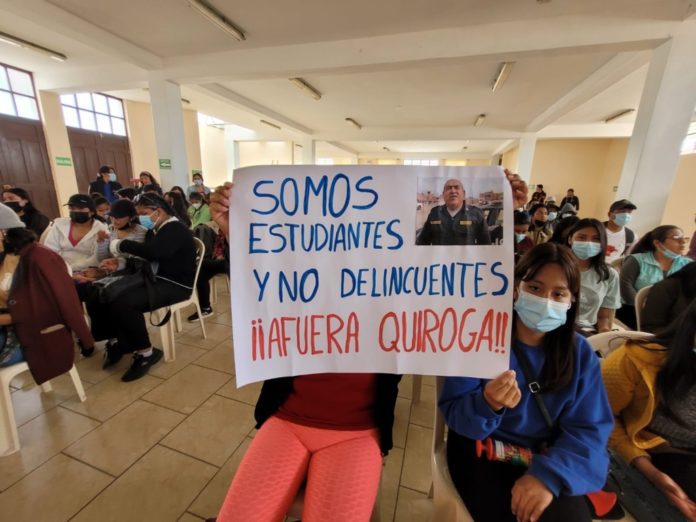 SOMOS
ESTUDIANTES
Y NO DELINCUENTES
¡¡AFUERA QUIROGA!!